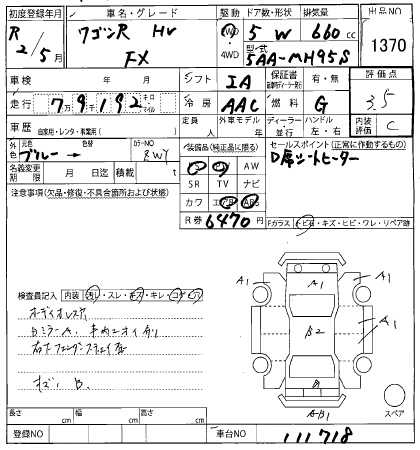 初度登録年月 車名・グレード 駆動 ドア数・形状 排気量 出品NO
R 2/5月 ワゴンR HV FX 2WD 4WD 5 W 660 cc 1370
型式 5AA-MH95S
車検 年 月 シフト IA 保証書 有・無 評価点
走行 7万9千192 キロ マイル 冷房 AAC 燃料 G 3.5
車歴 自家用・レンタ・事業用( ) 定員 人 外車モデル 年 ディーラー・並行 ハンドル 左・右 内装評価 C
外色 元色 ブルー → 色替 カラーNO ZWY 装備品(純正品に限る) セールスポイント(正常に作動するもの)
PS PW AW D席シートヒーター
名義変更期限 月 日迄 積載 t SR TV ナビ
注意事項(欠品・修復・不具合箇所および状態) カワ エアB ABS
R券 6470円 Fガラス トビ石・キズ・ヒビ・ワレ・リペア跡
検査員記入 内装 汚レ・スレ・キズ・キレ・コゲ・穴
オーディオレス
キズ B
A1 A1 A1 B2 A1 A1 B A・B1
スペア
長さ cm 幅 cm 高さ cm
登録NO 車台NO 111718